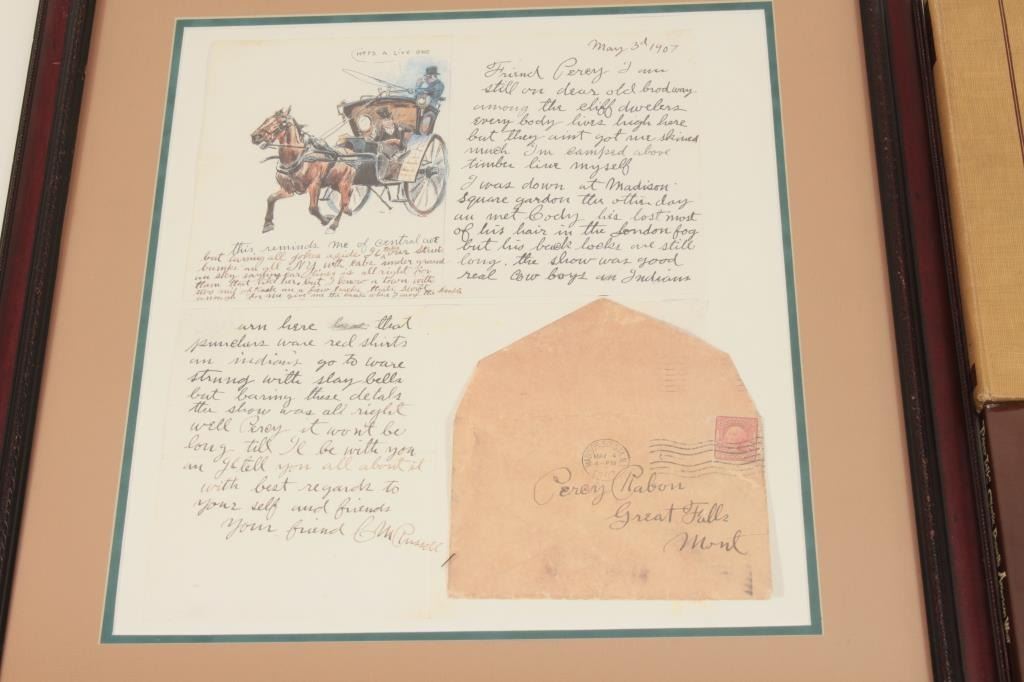 HERS A LIVE ONE
May 3d 1907
Friend Percy I am
still on dear old brodway
among the cliff dwelers
every body lives high here
but they aint got me skined
much I'm camped above
timber line myself
I was down at Madison
Square gardon the other day
an met Cody his lost most
of his hair in the London fog
but his back locks are still
long. the show was good
real Cow boys an Indians
this reminds me of central ave
but taring all jokes aside
bumps an all NY with cabs under ground
an sky
them that like her, but I know a town with
arn here that
punchers ware red shirts
an indians go to ware
strung with slay bells
but baring these detals
the show was all right
well Percy it wont be
long till Il be with you
an Il tell you all about it
with best regards to
your self and friends
your friend CM Russell
MAY 4
Percy Rabon
Great Falls
Mont